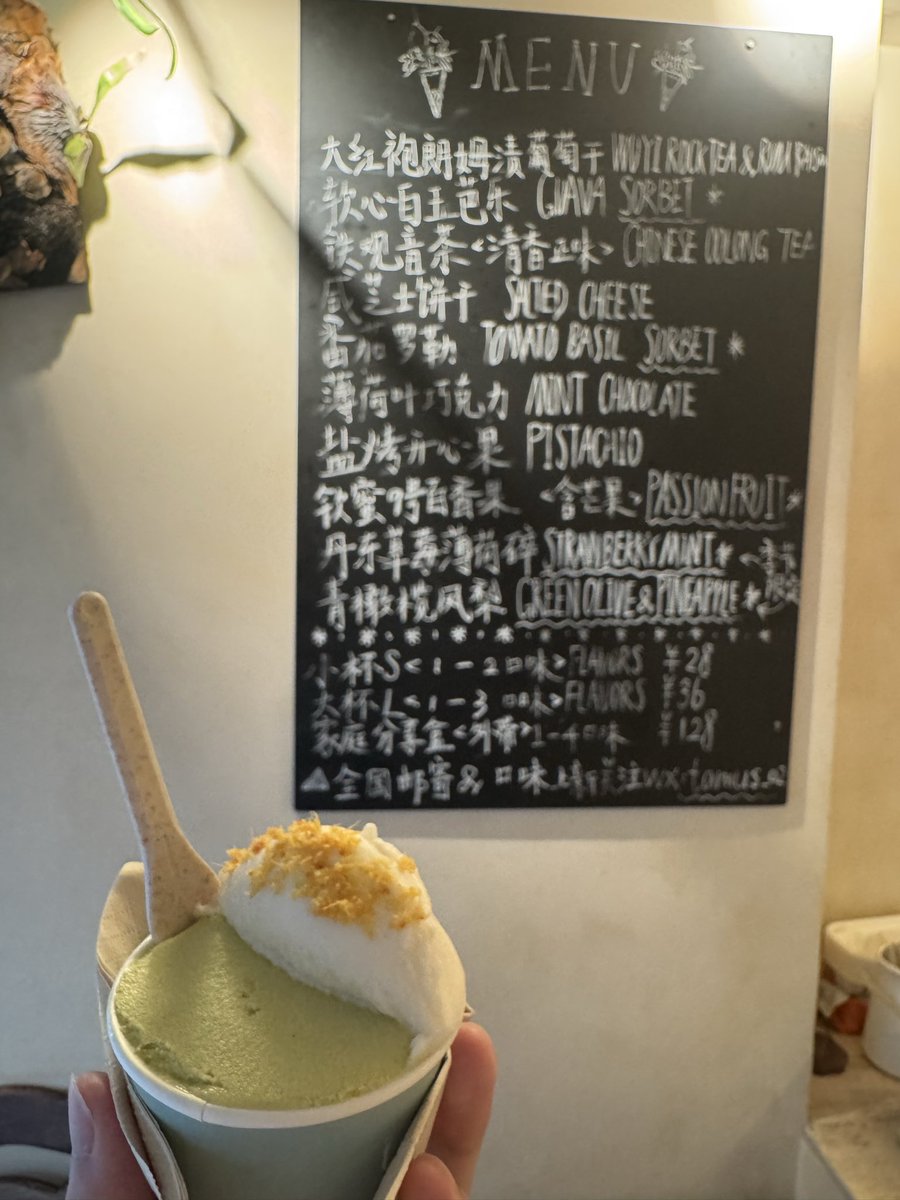 MENU
大红袍朗姆渍葡萄干 WUYI ROCK TEA & RUM RAISIN
软心白玉芭乐 GUAVA SORBET *
铁观音茶<清香正味> CHINESE OOLONG TEA
咸芝士饼干 SALTED CHEESE
番茄罗勒 TOMATO BASIL SORBET *
薄荷叶巧克力 MINT CHOCOLATE
盐烤开心果 PISTACHIO
钦蜜9号百香果 <含芒果> PASSIONFRUIT *
丹东草莓薄荷碎 STRAWBERRY&MINT *
青橄榄凤梨 GREEN OLIVE & PINEAPPLE *
小杯S<1-2口味> FLAVORS ¥28
大杯L<1-3 口味> FLAVORS ¥36
家庭分享盒<外带> 1-4口味 ¥128
全国邮寄& 口味上新关注wx